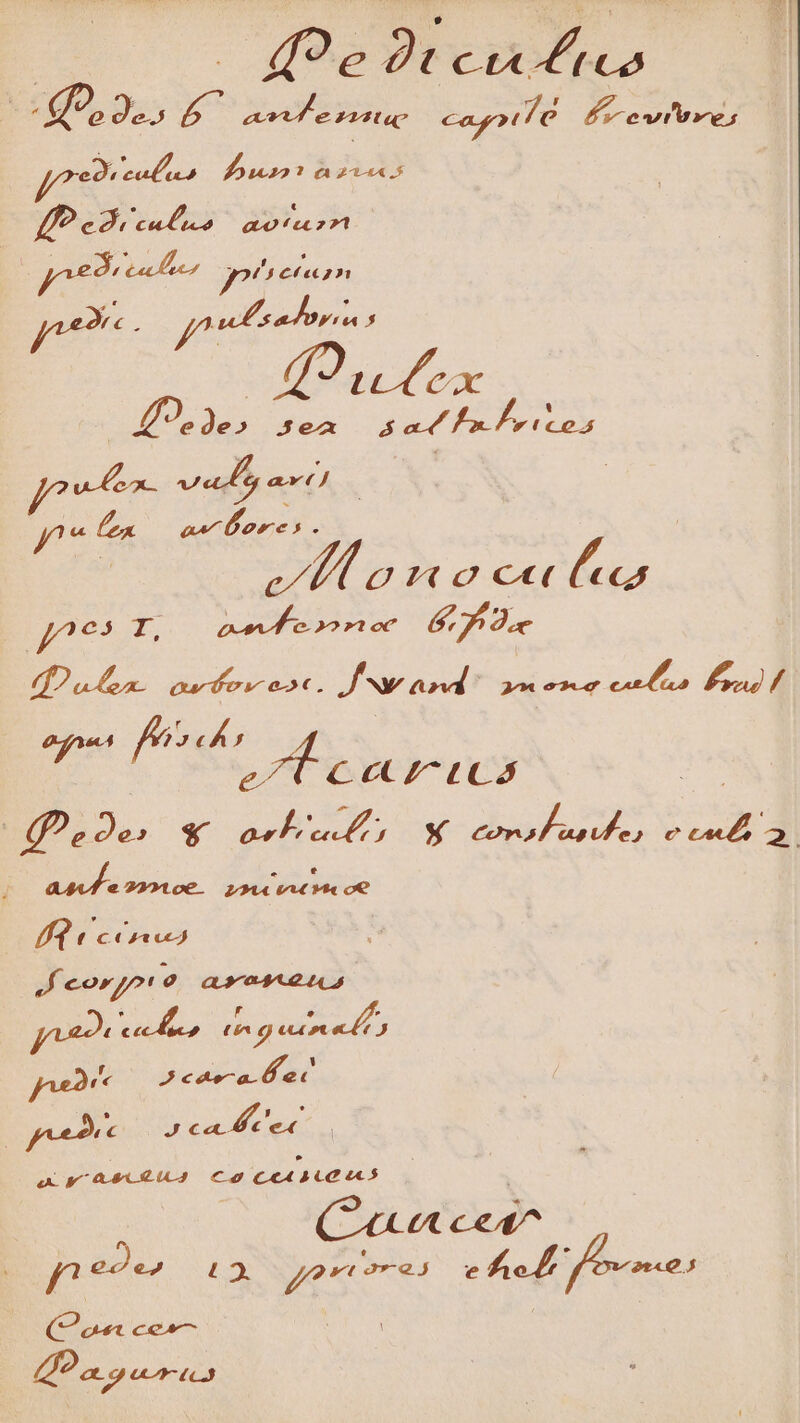 Pediculus
Pedes 6 antennæ capite breviores
pediculus humanus
Pediculus avium
pediculus piscium
pedic. pulsatorius
Pulex
Pedes sex saltatrices
pulex vulgaris
pulex arbores.
Monoculus
pes I, antennæ bifidæ
Pulex arboresc. Swamd monoculus
apus frischs
Acarus
Pedes 8 articulis 8 constantes oculi 2.
antennæ minimæ
Ricinus
Scorpio araneus
pediculus inguinalis
pedic scarabei
pedic scabiei
araneus coccineus
Cancer
pedes 12 priores cheliformes
Cancer
Pagurus